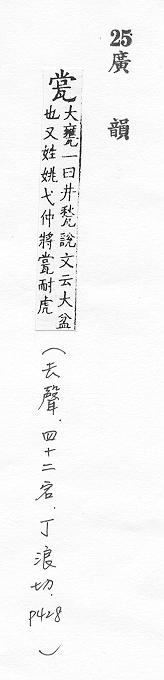 25廣韻
瓽大甕一曰井甃說文云大盆
也又姓姚弋仲將瓽耐虎
(去聲.四十二宕.丁浪切.P428)